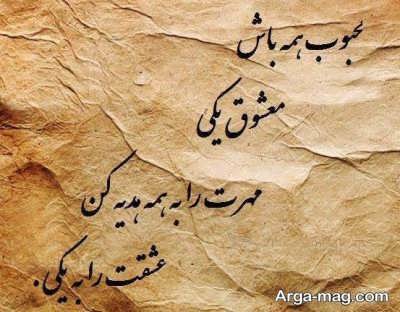 محبوب همه باش
معشوق یکی
مهرت را به همه هدیه کن
عشقت را به یکی.
Arga-mag.com